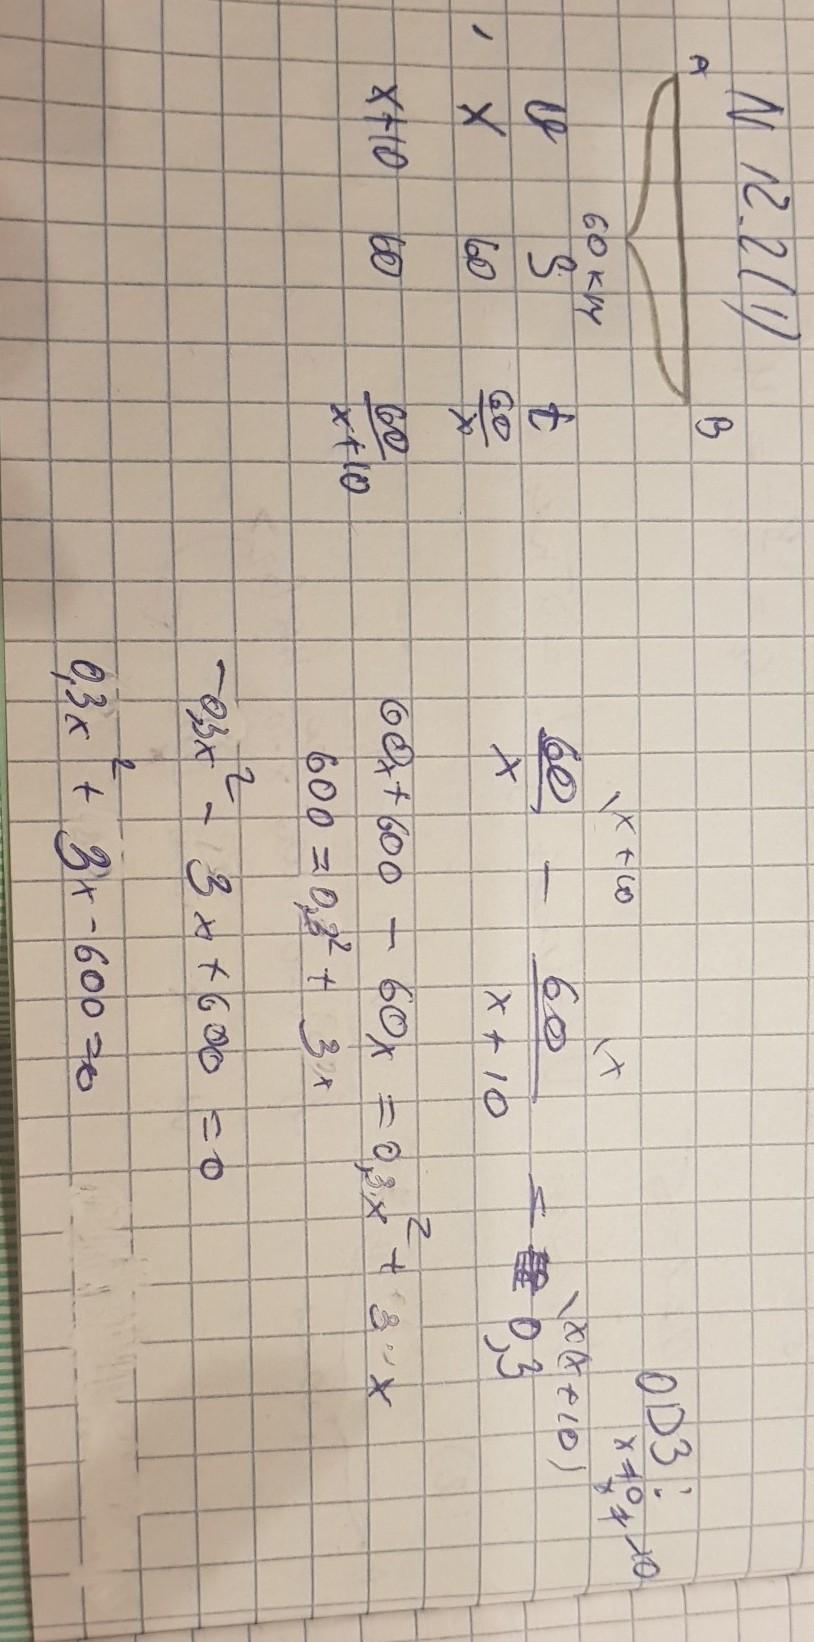 N 12.2(1)
A B
60 км
v S t
x 60 60/x
x+10 60 60/x+10
ОДЗ:
x≠0, x≠-10
\x+10 \x \x(x+10)
60/x - 60/x+10 = 0,3
60x+600 - 60x = 0,3x² + 3·x
600 = 0,3² + 3x
-0,3x² - 3x+600 = 0
0,3x² + 3x-600=0